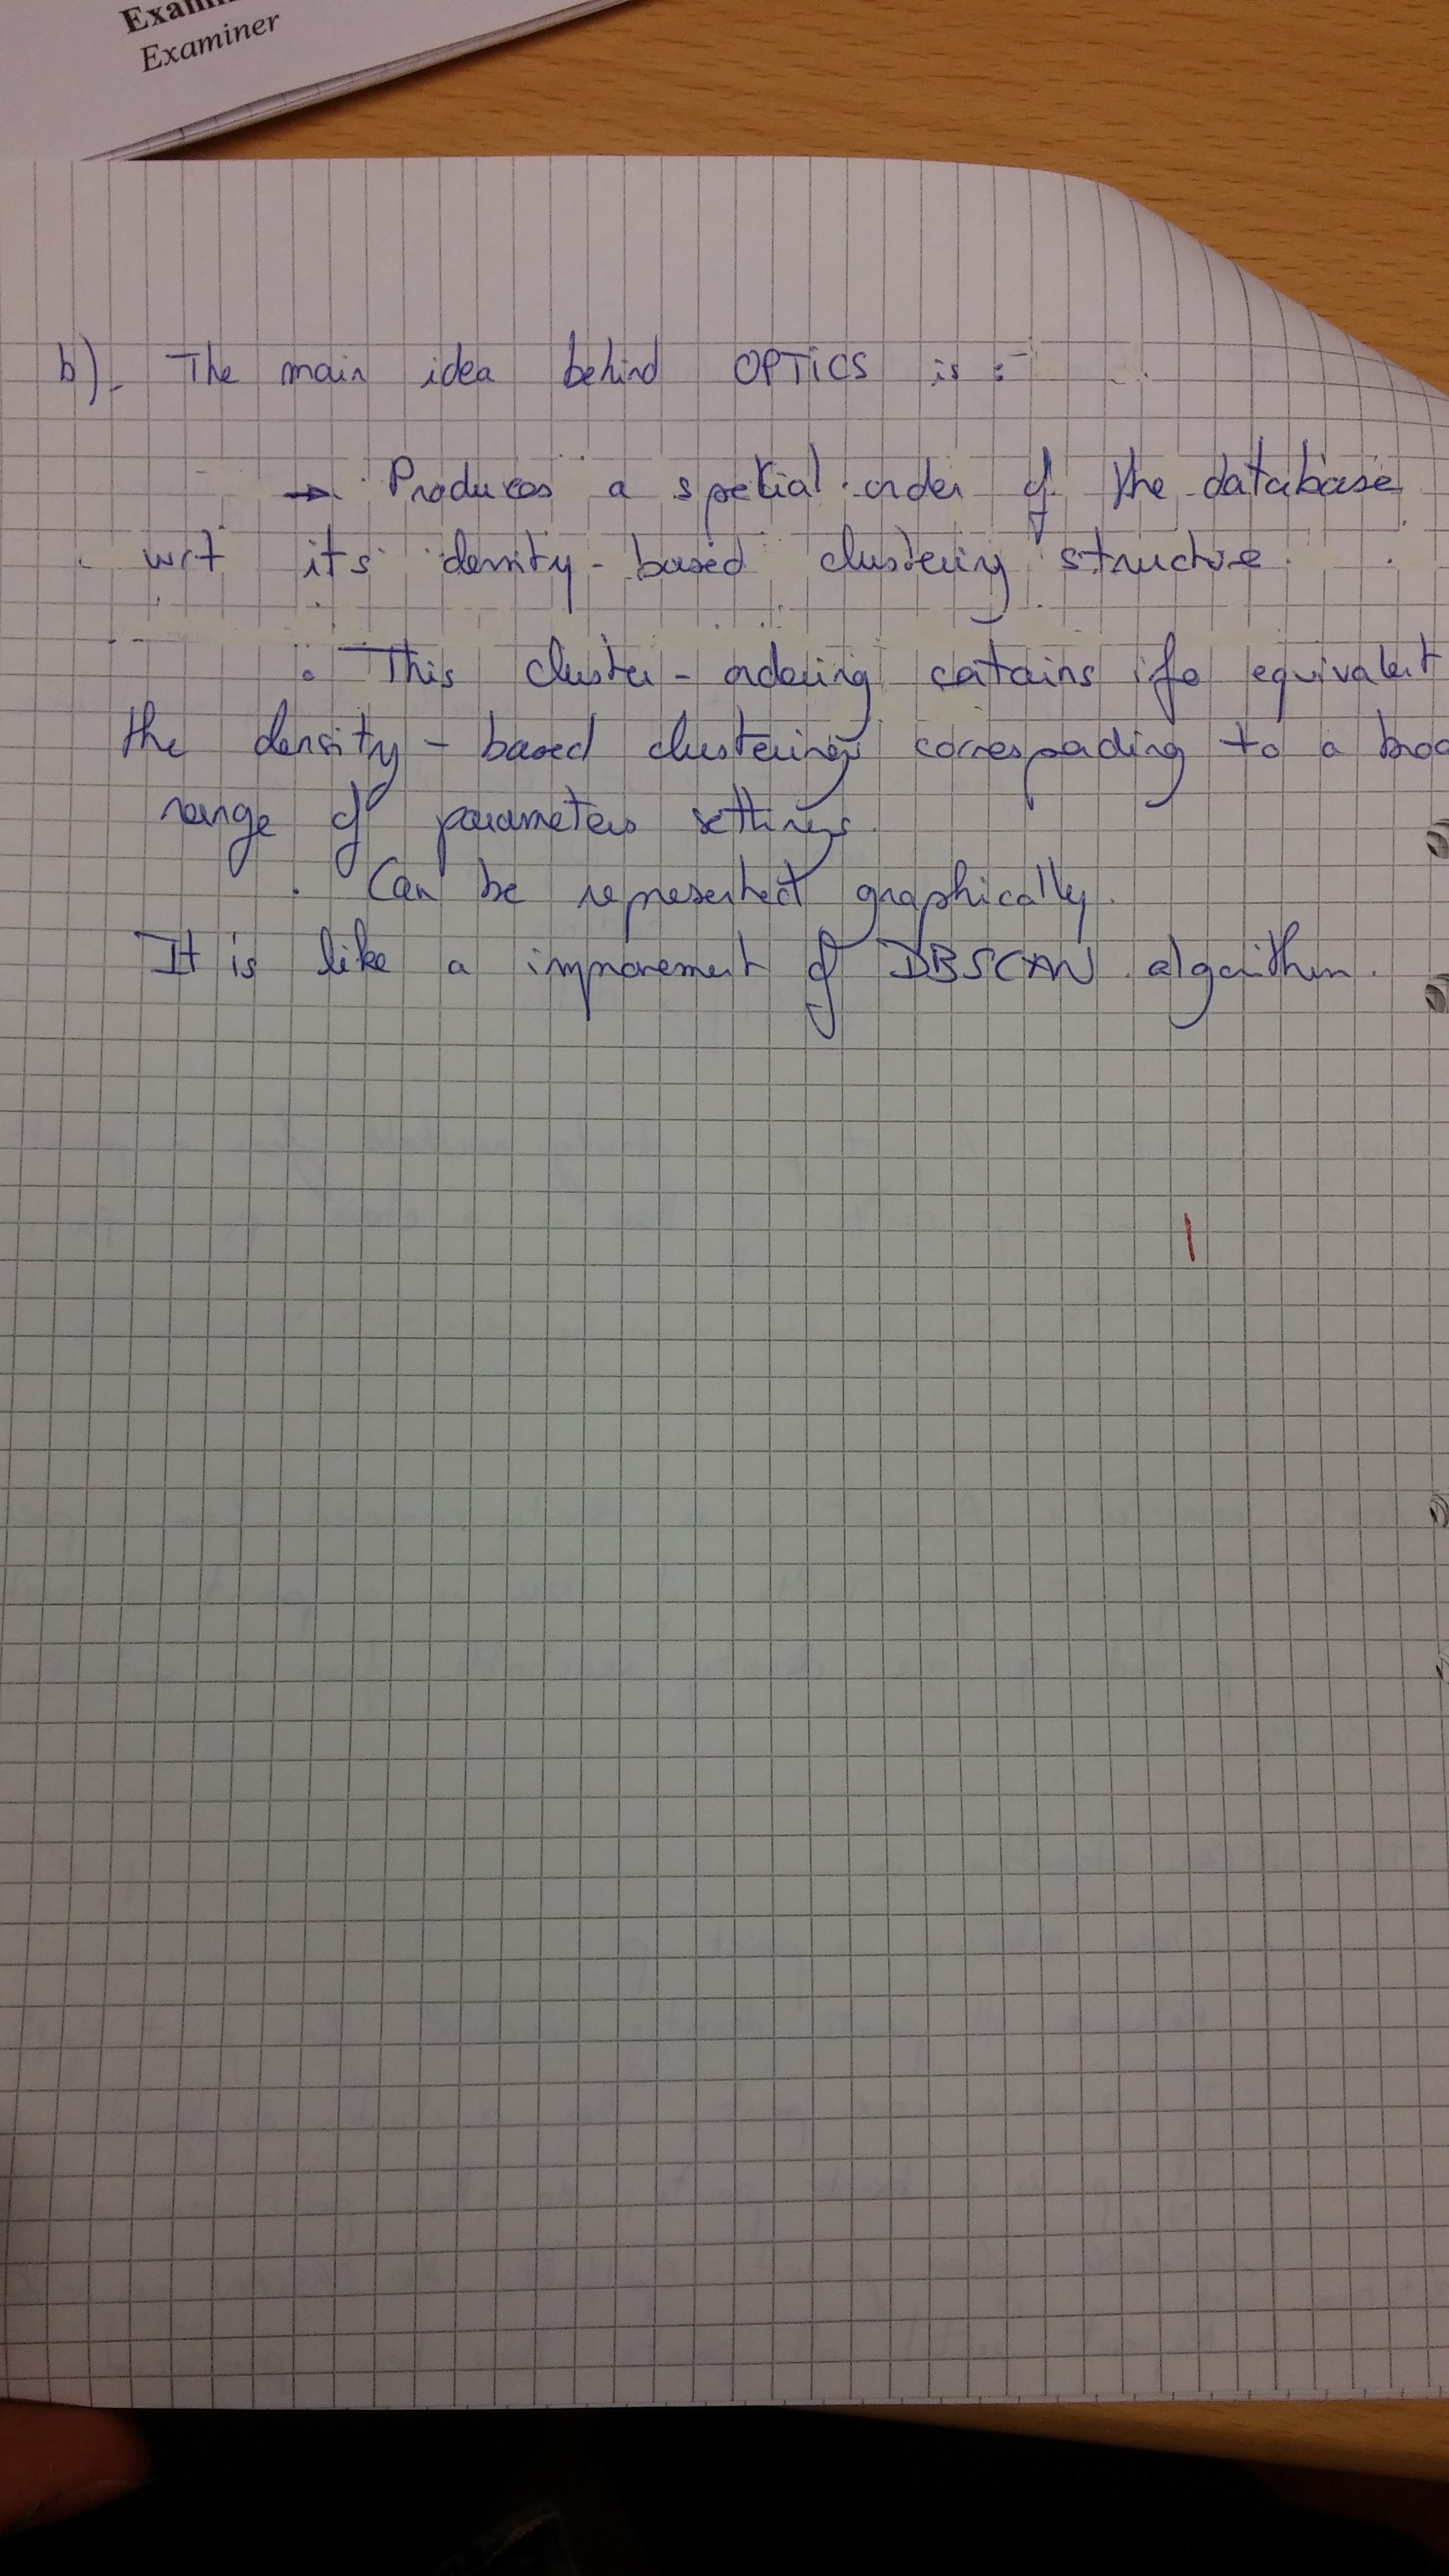 Exam
Examiner
b)_ The main idea behind OPTICS is :
→ Produces a spetial order of the database
wrt its density-based clustering structure.
• This cluster-ordering contains ifo equivalent
the density-based clusterings correspading to a broa
range of parameters settings.
. Can be represented graphically.
It is like a improvement of DBSCAN algorithm.